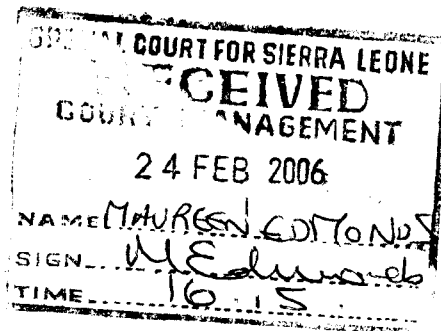 COURT FOR SIERRA LEONE
RECEIVED
COURT MANAGEMENT
24 FEB 2006
NAME MAUREEN EDMONDS
SIGN
TIME 16.15